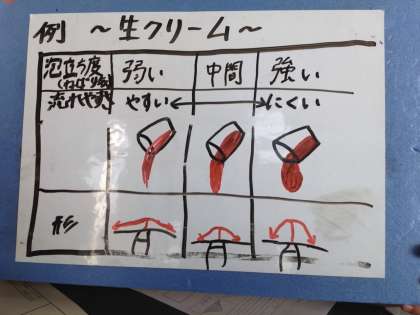 例 ～生クリーム～
泡立ち度 弱い 中間 強い
(ねばり気)
流れやすさ やすい にくい
形